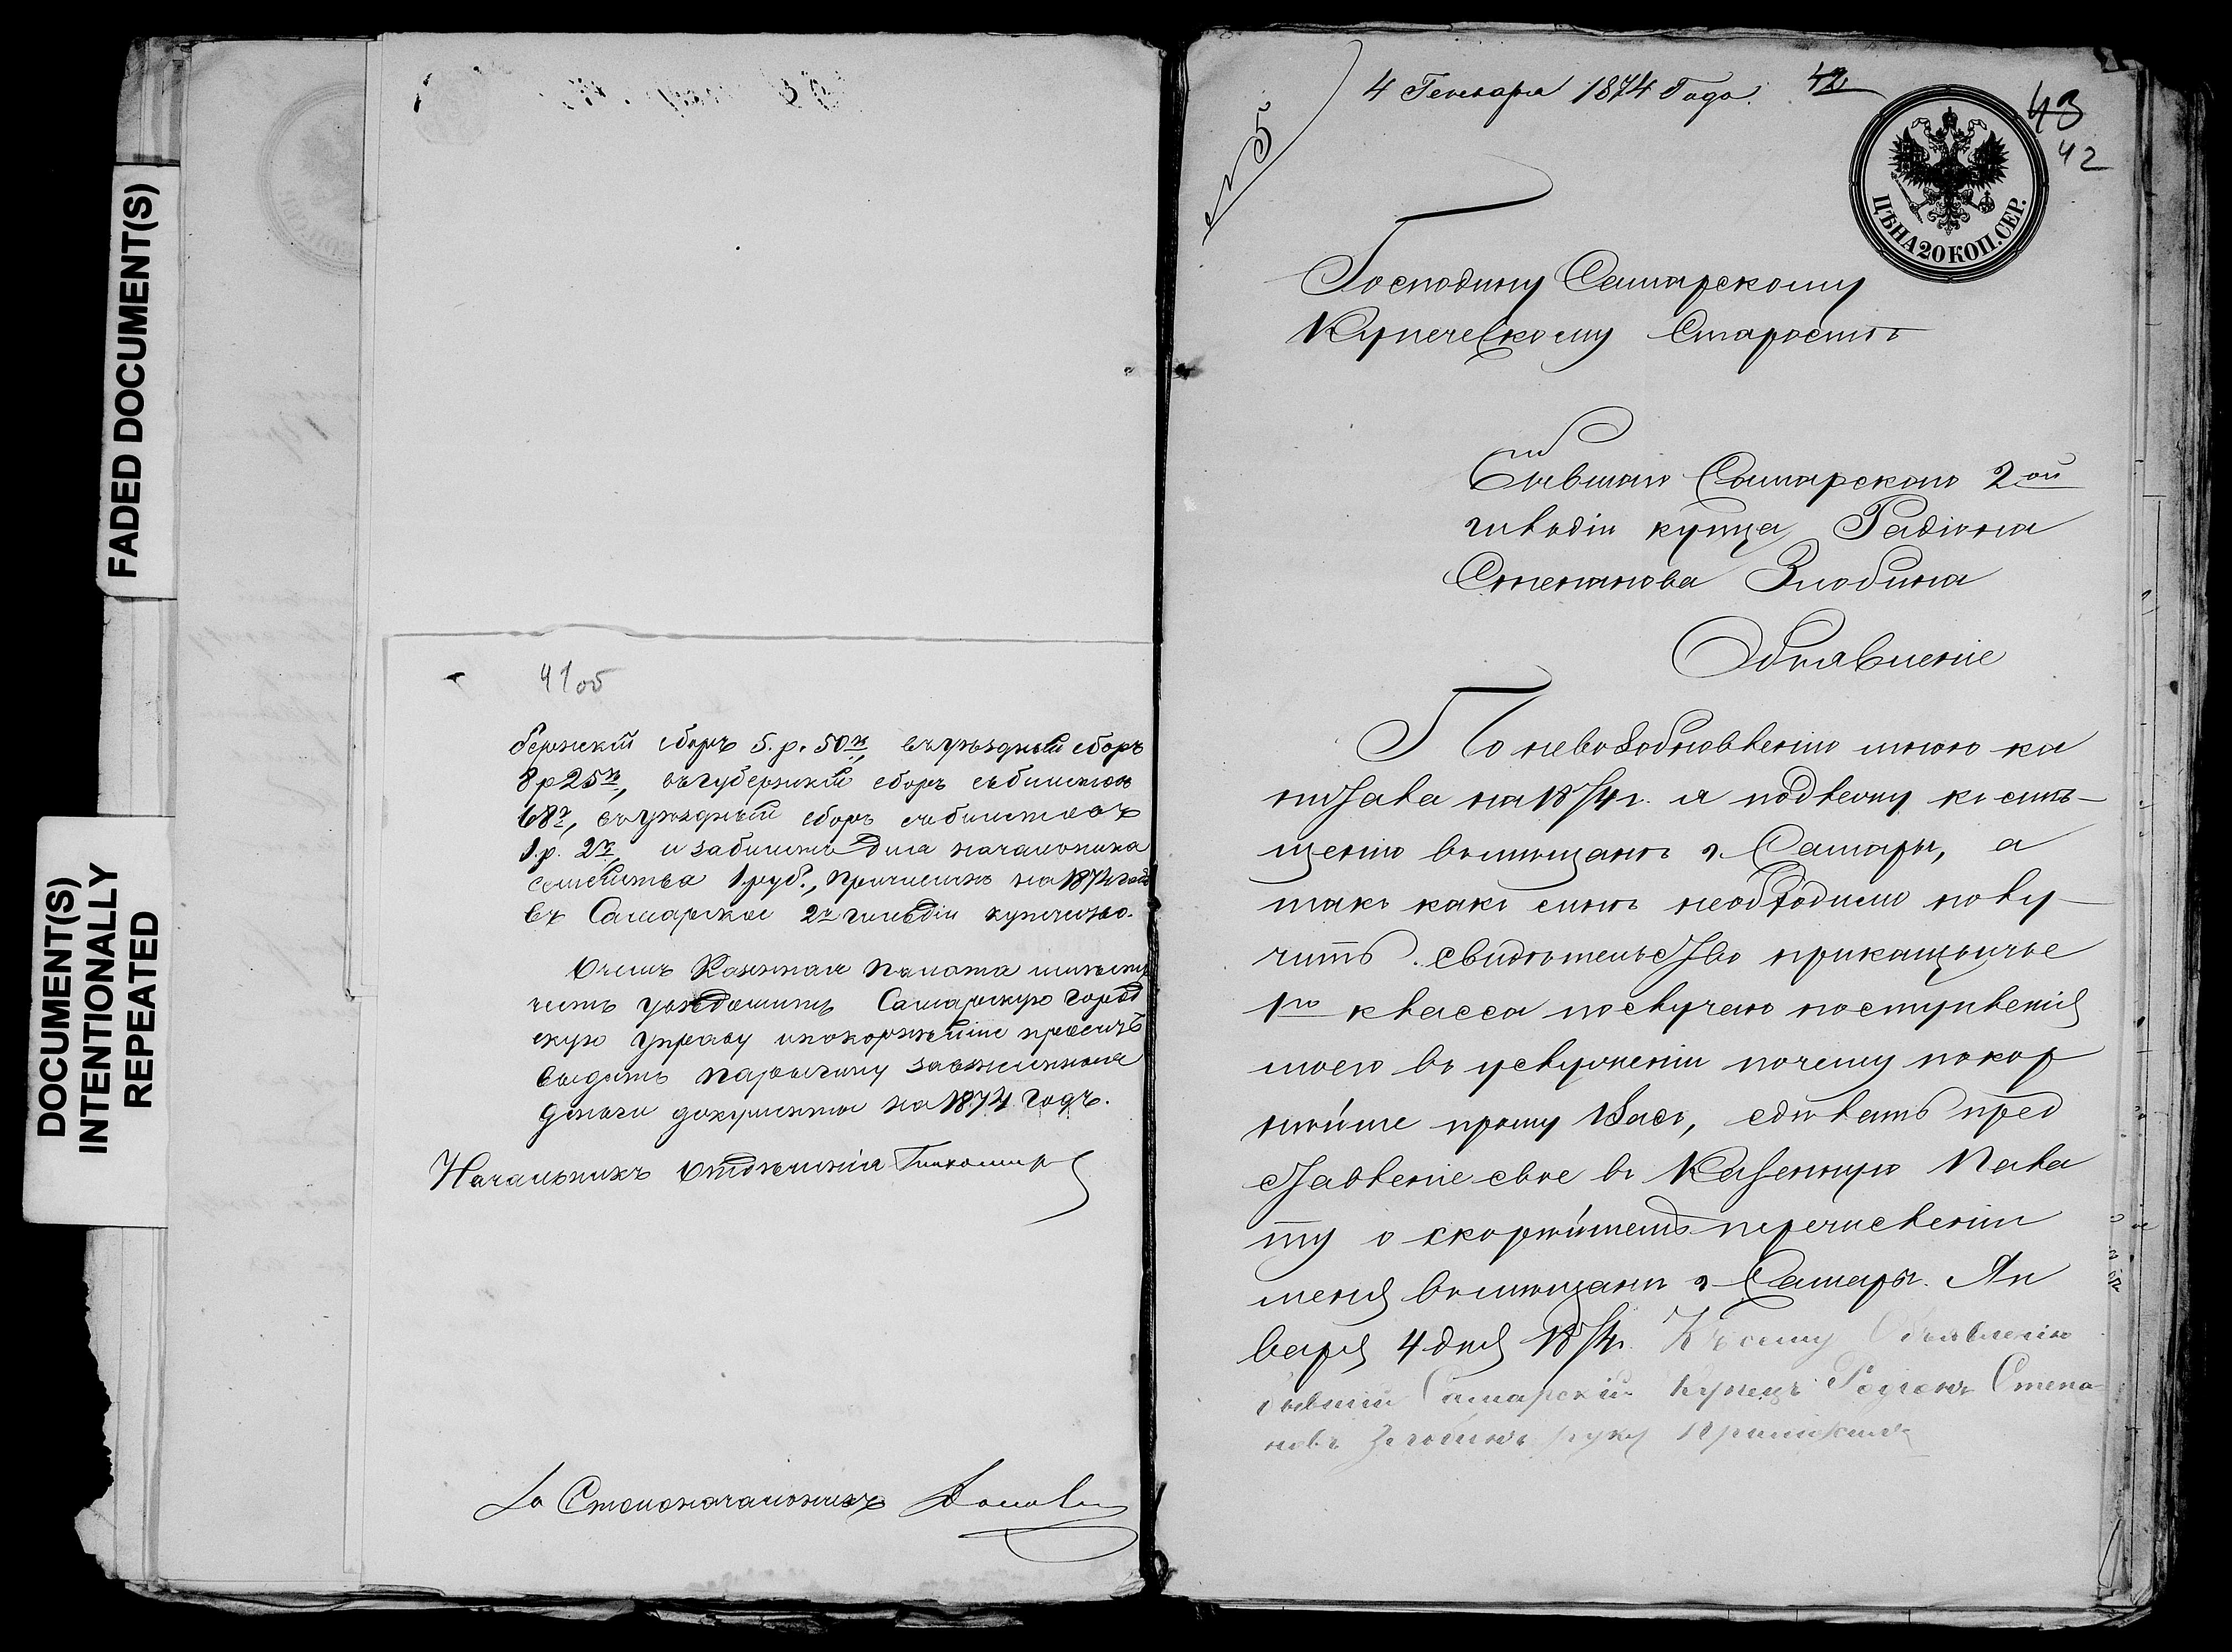 FADED DOCUMENT(S)
DOCUMENT(S)
INTENTIONALLY
REPEATED
41об
бернскій сборъ 5.р. 50к., въ уѣздный сборъ
8р 25к., въ губернскій сборъ съ билетовъ
68к., въ уѣздный сборъ съ билетовъ
1.р. 2к. и за билетъ для начальника
семейства 1.руб., причисленъ на 1874 годъ
въ Самарское 2й гильдіи купечество.
О чемъ Казенная Палата имѣетъ
честь увѣдомить Самарскую Город
скую Управу и покорнѣйше просить
выдать
документы на 1874 годъ.
Начальникъ Отдѣленія
За Столоначальника
4 Генваря 1874 Года.
42
43
42
№ 5
ЦѢНА 20 КОП. СЕР.
Господину Самарскому
Купеческому Старостѣ
Бывшаго Самарскаго 2ой
гильдіи купца Радіона
Степанова Злобина
Объявленіе
По невозобновленію мною ка
питала на 1874г. я подлежу к смѣ-
щенію в мѣщанѣ г. Самары, а
такъ какъ мнѣ необходимо полу-
чить свидѣтельство прикащичье
1го класса по случаю поступленія
моего в услуженіи почему покор
нѣйше прошу Васъ, сдѣлать пред
ставленіе свое в Казенную Пала
ту о скорѣйшемъ перечисленіи
меня в мѣщанѣ г. Самары. Ян
варя 4 дня 1874г. Къ сему Объявленію
бывшій Самарскій Купецъ Родіонъ Степа
новъ Злобинъ руку приложилъ